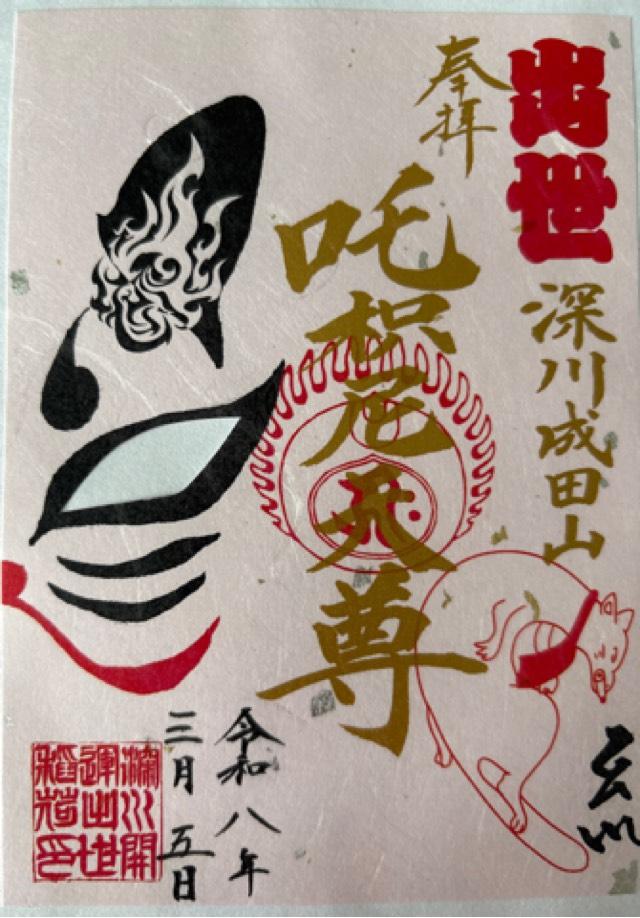 出世
深川成田山
奉拝
吒枳尼天尊
令和八年
三月五日
深川開
運出世
稲荷印